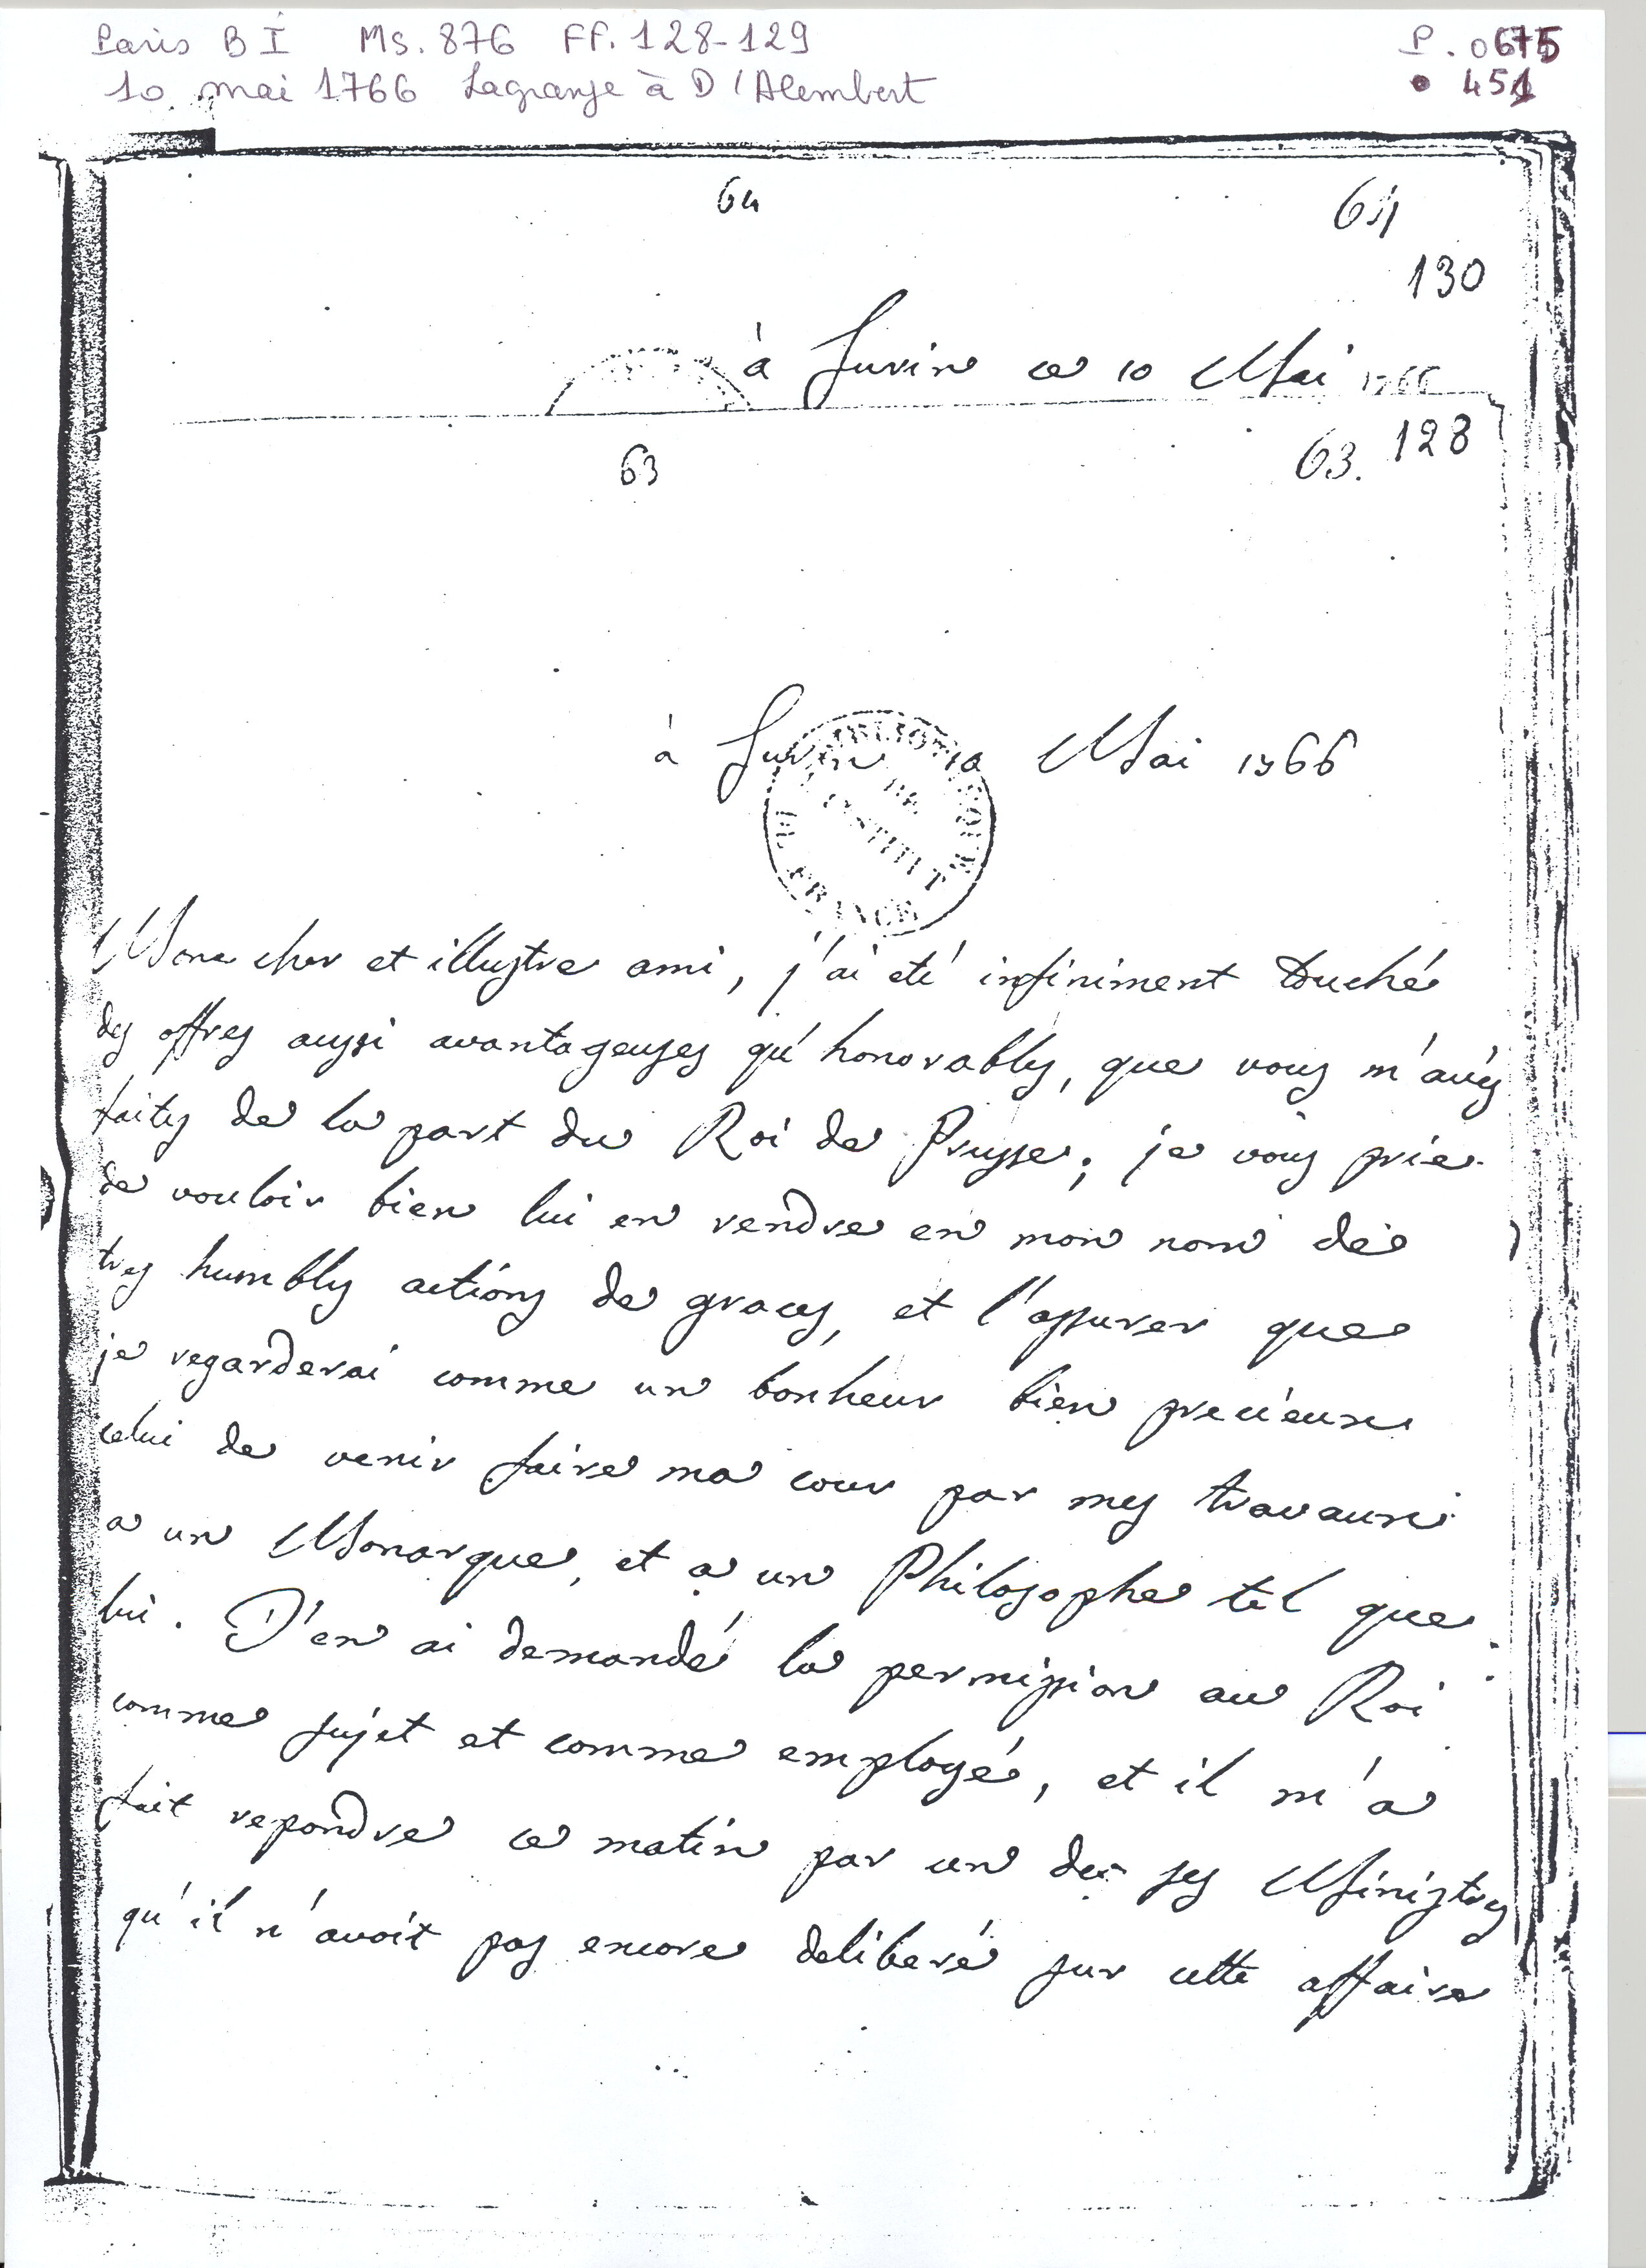 Paris BI Ms. 876 FF. 128-129
P. 0675
10 mai 1766 Lagrange à D'Alembert
451
64
64
130
à Turin ce 10 Mai 1766
63
63. 128
à Turin 10 Mai 1766
BIBLIOTHÈQUE DE L'INSTITUT DE FRANCE
Mon cher et illustre ami, j'ai eté infiniment touché
des offres aussi avantageuses qu'honorables, que vous m'avés
faites de la part du Roi de Prusse; je vous prie
de vouloir bien lui en rendre en mon nom de
tres humbles actions de graces, et l'assurer que
je regarderai comme un bonheur bien precieux
celui de venir faire ma cour par mes travaux
a un Monarque, et a un Philosophe tel que
lui. J'en ai demandé la permission au Roi
comme sujet et comme employé, et il m'a
fait repondre ce matin par un de ses Ministres
qu'il n'avoit pas encore deliberé sur cette affaire